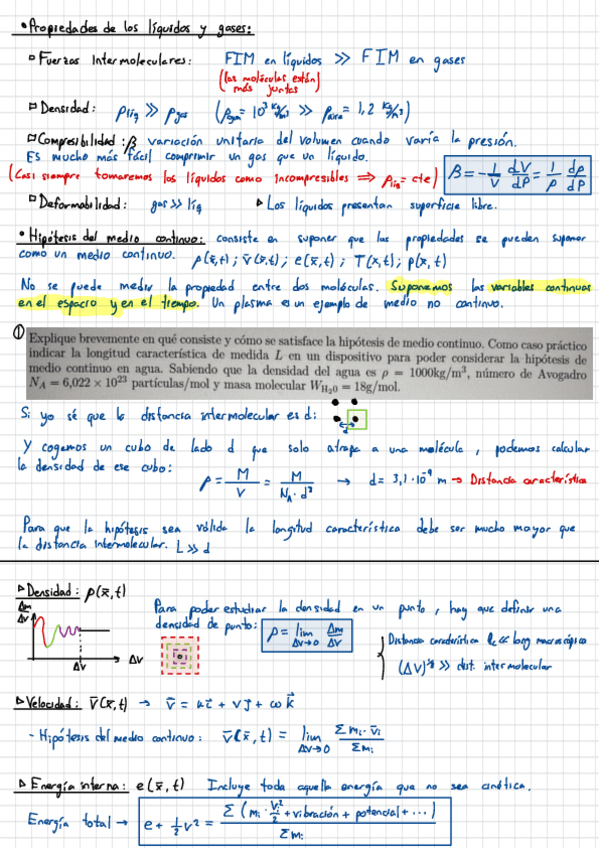 • Propiedades de los líquidos y gases:
▫ Fuerzas Intermoleculares: FIM en líquidos >> FIM en gases
(las moléculas están más juntas)
▫ Densidad: ρliq >> ρgas (ρagua = 10³ kg/m³ >> ρaire = 1,2 kg/m³)
▫ Compresibilidad: β variación unitaria del volumen cuando varía la presión.
Es mucho más fácil comprimir un gas que un líquido.
(Casi siempre tomaremos los líquidos como incompresibles ⇒ ρliq = cte)
β = -1/V dV/dP = 1/ρ dρ/dP
▫ Deformabilidad: gas >> liq ▸ Los líquidos presentan superficie libre.
• Hipótesis del medio continuo: consiste en suponer que las propiedades se pueden suponer
como un medio continuo. ρ(x̄,t); v̄(x̄,t); e(x̄,t); T(x,t); p(x,t)
No se puede medir la propiedad entre dos moléculas. Suponemos las variables continuas
en el espacio y en el tiempo. Un plasma es un ejemplo de medio no continuo.
① Explique brevemente en qué consiste y cómo se satisface la hipótesis de medio continuo. Como caso práctico
indicar la longitud característica de medida L en un dispositivo para poder considerar la hipótesis de
medio continuo en agua. Sabiendo que la densidad del agua es ρ = 1000kg/m³, número de Avogadro
N_A = 6,022 × 10²³ partículas/mol y masa molecular W_H₂0 = 18g/mol.
Si yo sé que la distancia intermolecular es d:
d
Y cogemos un cubo de lado d que solo atrapa a una molécula, podemos calcular
la densidad de ese cubo:
ρ = M/V = M/(N_A · d³) → d = 3,1·10⁻⁹ m → Distancia característica
Para que la hipótesis sea válida la longitud característica debe ser mucho mayor que
la distancia intermolecular. L >> d
▸ Densidad: ρ(x̄,t)
Δm/ΔV
ΔV
ΔV
Para poder estudiar la densidad en un punto, hay que definir una
densidad de punto: ρ = lim ΔV→0 Δm/ΔV
Distancia característica ℓc << long macroscópica
(ΔV)^1/3 >> dist. intermolecular
▸ Velocidad: v̄(x̄,t) → v̄ = u i + v j + ω k
- Hipótesis del medio continuo: v̄(x̄,t) = lim ΔV→0 Σ mi · v̄i / Σ mi
▸ Energía interna: e(x̄,t) Incluye toda aquella energía que no sea cinética.
Energía total → e + 1/2 v² = Σ (mi · vi²/2 + vibración + potencial + ...) / Σ mi